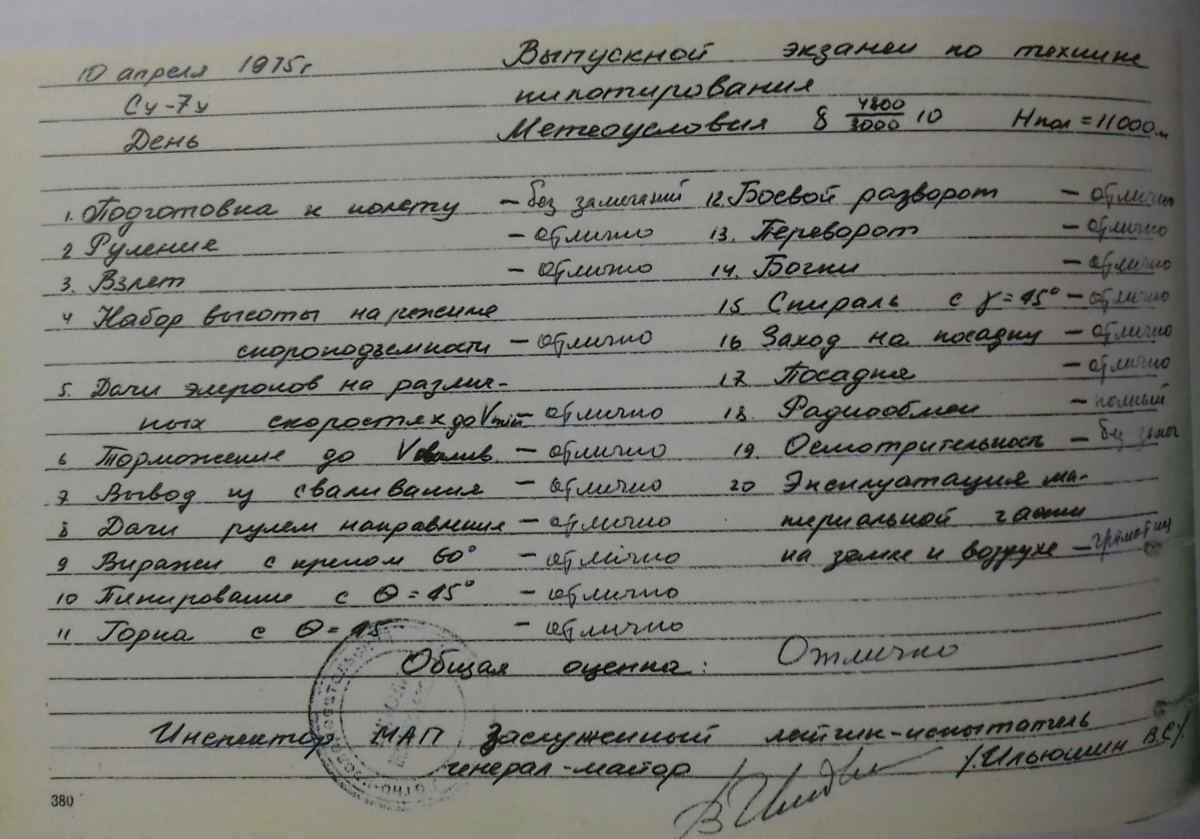 10 апреля 1975г
Су-7у
День
Выпускной экзамен по технике
пилотирования
Метеоусловия 8 4800/3000 10 Нпол = 11000м
1. Подготовка к полету - без замечаний
2 Руление - отлично
3. Взлет - отлично
4 Набор высоты на режиме
скороподъемности - отлично
5. Дачи элеронов на различ-
ных скоростях до Vmin - отлично
6 Торможение до Vсвалив. - отлично
7 Вывод из сваливания - отлично
8 Дачи рулем направления - отлично
9 Виражи с креном 60° - отлично
10 Пикирование с Θ = 45° - отлично
11 Горка с Θ = 45 - отлично
12. Боевой разворот - отлично
13. Переворот - отлично
14. Бочки - отлично
15 Спираль с γ = 45° - отлично
16 Заход на посадку - отлично
17. Посадка - отлично
18. Радиообмен - полный
19. Осмотрительность - без замеч
20 Эксплуатация ма-
териальной части
на земле и воздухе - грамотная
Общая оценка: Отлично
Инспектор МАП Заслуженный летчик-испытатель
генерал-майор /Ильюшин В.С/
380